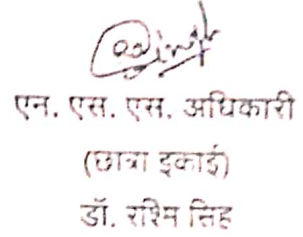 एन. एस. एस. अधिकारी
(छात्रा इकाई)
डॉ. रश्मि सिंह